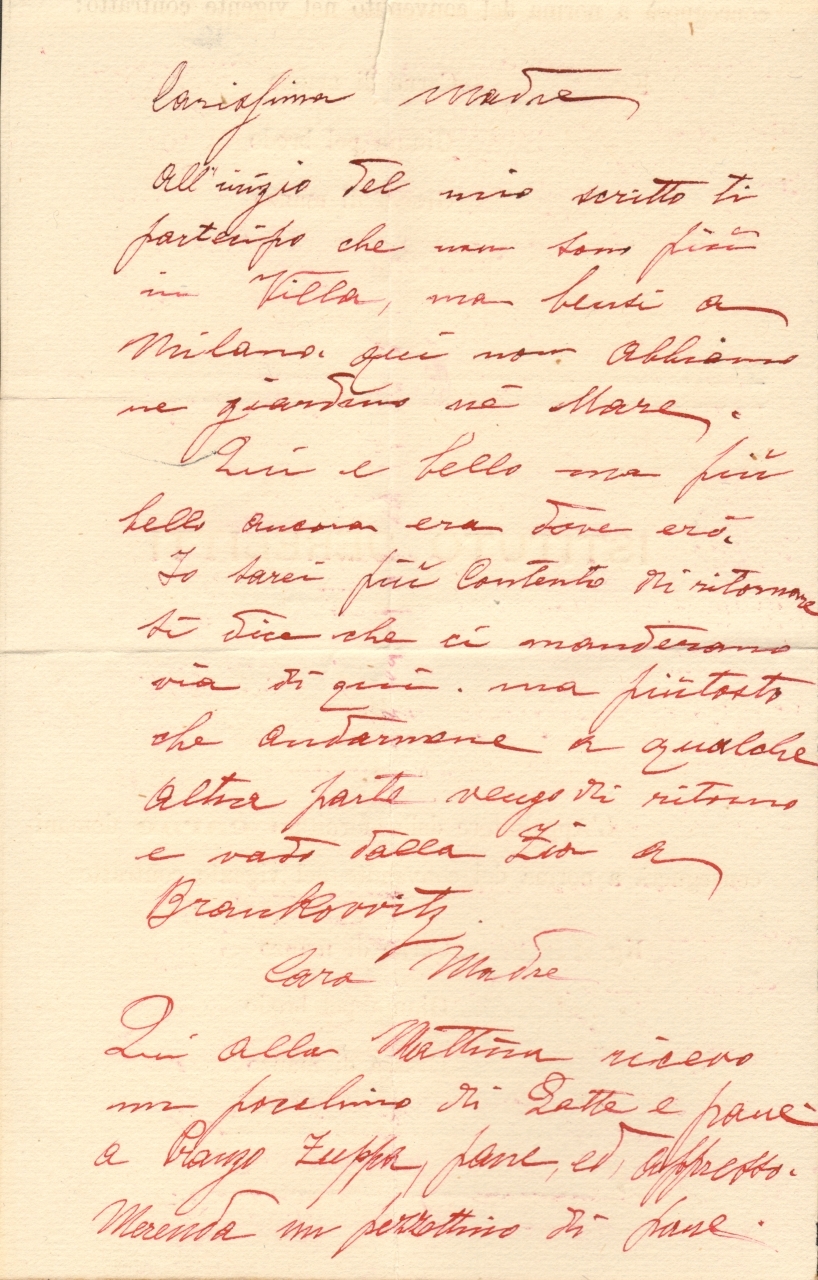 Carissima Madre
All'inizio del mio scritto ti
partecipo che non sono più
in Villa, ma bensi a
Milano. qui non abbiamo
ne giardino nè Mare.
Qui e bello ma più
bello ancora era dove erò.
Io sarei più Contento di ritornare
si dice che ci manderano
via di qui. ma piùtosto
che andarmene a qualche
altra parte vengo di ritorno
e vado dalla Zia a
Brankovvitz
Cara Madre
Qui alla Mattina ricevo
un pocchino di Latte e pane
a Pranzo Zuppa, pane, ed, appresso.
Merenda un pezzettino di pane.